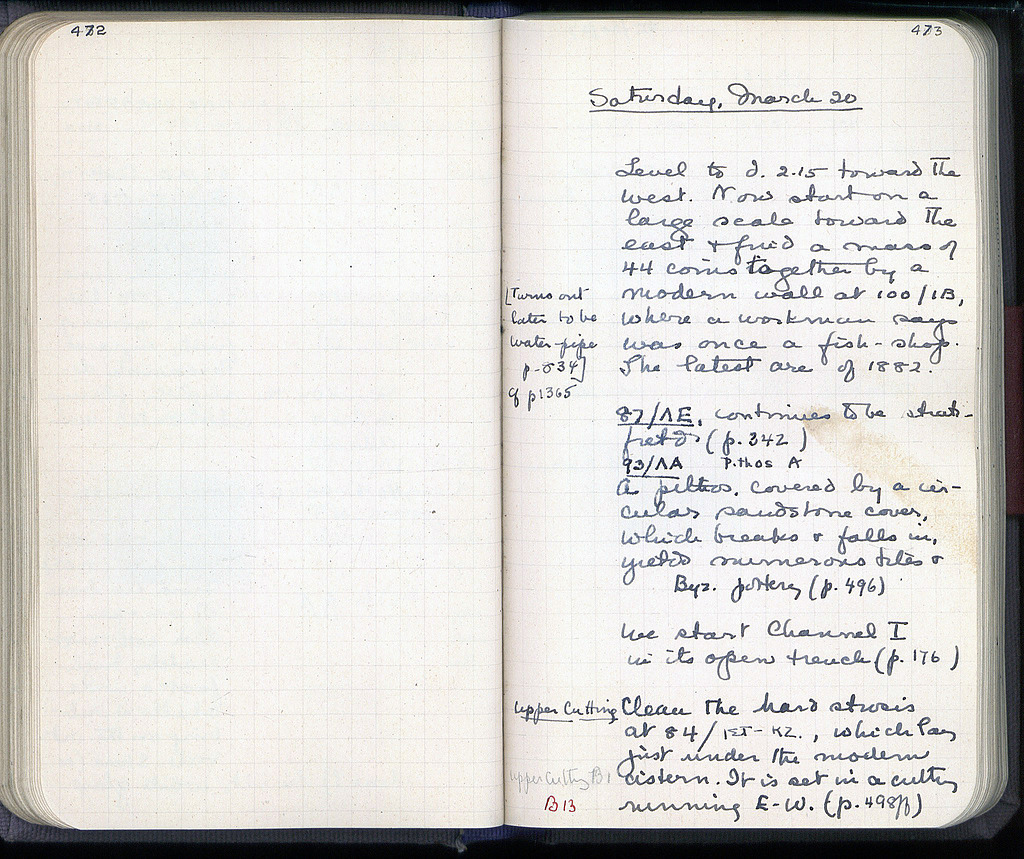 472
473
Saturday, March 20
Level to d. 2.15 toward the
west. Now start on a
large scale toward the
east + find a mass of
44 coins together by a
modern wall at 100/ΙΒ,
where a workman says
was once a fish-shop.
The latest are of 1882.
[Turns out
later to be
water-pipe
p-834]
cf p1365
87/ΛΕ, continues to be strati-
fied (p. 342)
93/ΛΑ Pithos A
A pithos, covered by a cir-
cular sandstone cover,
which breaks + falls in,
yields numerous tiles +
Byz. pottery (p. 496)
We start Channel I
in its open trench (p. 176)
Upper Cutting
Clean the hard strosis
at 84/ – ΚΖ., which lay
just under the modern
cistern. It is set in a cutting
running E-W. (p. 498ff)
Upper Cutting B1
B13